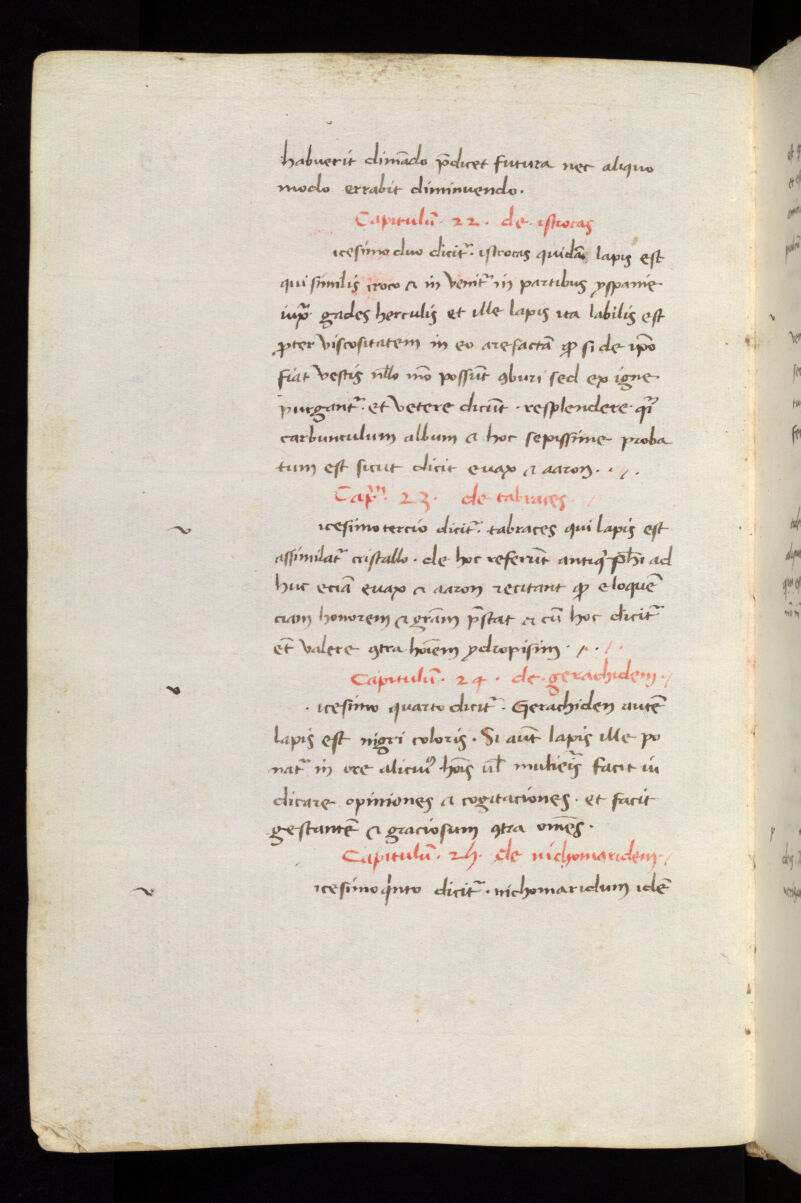 habuerit dimādo p̄dicet futura nec aliquo
modo errabit diminuendo.
Capitulū. 22. de istrocas
icesimo duo dicit᷑. istrocas quidā lapis est
qui similis croco & in venit᷑ in partibus yspanie
iuxᵃ gades herculis et ille lapis ita labilis est
ꝓpter viscositatem in eo arefactā ꝙ si de ip̄o
fiat vestis nĺlo mō possūt ꝯburi sed ex igne
purgant᷑. et vetere dicūt. resplendere
carbunculum album & hoc sepissime proba
tum est sicut dicit evax & aaron.
Cap̄m. 23. de tabraces
icesimo tercio dicit᷑. tabraces qui lapis est
assimilat᷑ cristallo. de hoc referūt antiqⁱ ph̄i ad
huc eciā evax & aaron recitant ꝙ eloquē
ciam honorem & grām p̄stat & cū hoc dicit᷑
et̄ valere ꝯtra hōiem ydropisim.
Capitulū. 24. de gerachidem.
. icesimo quarto dicit᷑. Gerachiden autē
lapis est nigri coloris. Si aūt lapis ille po
nat᷑ in ore alicuiꝰ hōis ūl mulieris facit iu
dicare opiniones & cogitaciones. et facit
gestantē & graciosum ꝯtra om̄es.
Capitulū. 25. de nichomaridem.
icesimo qⁱnto dicit᷑. nichomaridum idē